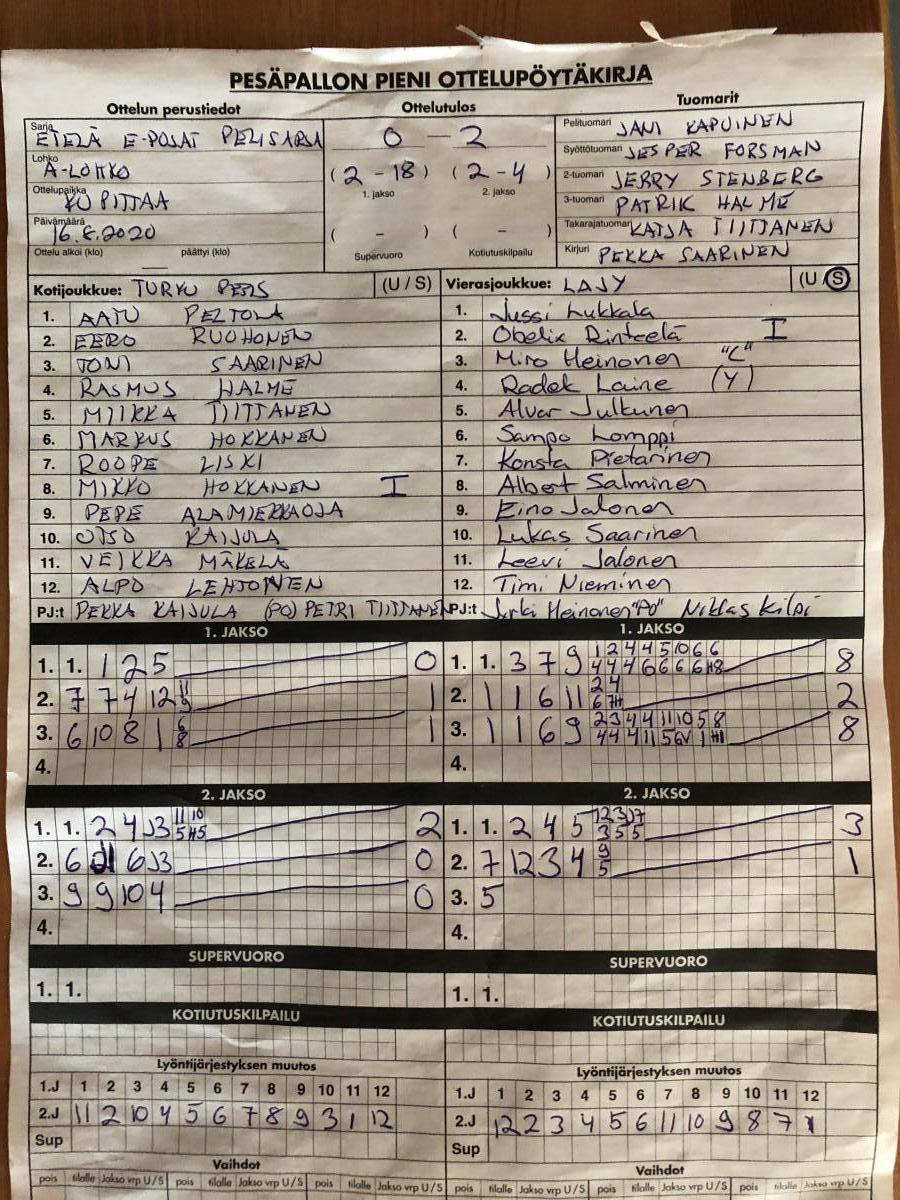 PESÄPALLON PIENI OTTELUPÖYTÄKIRJA
Ottelun perustiedot
Sarja ETELÄ E-POJAT PELISARJA
Lohko A-LOHKO
Ottelupaikka KUPITTAA
Päivämäärä 16.8.2020
Ottelu alkoi (klo) — päättyi (klo)
Ottelutulos
0 – 2
(2 - 18) (2 - 4)
1. jakso 2. jakso
( - ) ( - )
Supervuoro Kotiutuskilpailu
Tuomarit
Pelituomari JANI KAPUINEN
Syöttötuomari JESPER FORSMAN
2-tuomari JERRY STENBERG
3-tuomari PATRIK HALME
Takarajatuomari KATJA TIITTANEN
Kirjuri PEKKA SAARINEN
Kotijoukkue: TURKU PESIS (U / S)
1. AATU PELTOLA
2. EERO RUOHONEN
3. JONI SAARINEN
4. RASMUS HALME
5. MIIKKA TIITTANEN
6. MARKUS HOKKANEN
7. ROOPE LISKI
8. MIKKO HOKKANEN I
9. PEPE ALAMIEKKAOJA
10. OTSO KAIJULA
11. VEIKKA MÄKELÄ
12. ALPO LEHTONEN
PJ:t PEKKA KAIJULA (PO) PETRI TIITTANEN
Vierasjoukkue: LAJY (U / S)
1. Jussi Lukkala
2. Obelix Rinteelä I
3. Miro Heinonen "C"
4. Radek Laine (Y)
5. Alvar Julkunen
6. Sampo Lomppi
7. Konsta Pietarinen
8. Albert Salminen
9. Eino Jalonen
10. Lukas Saarinen
11. Leevi Jalonen
12. Timi Nieminen
PJ:t Jyrki Heinonen "PO" Niklas Kilpi
1. JAKSO
1. 1. 1 2 5 0
2. 7 7 4 12 11 9 1
3. 6 10 8 1 6 8 1
4.
1. JAKSO
1. 1. 3 7 9 1 2 4 4 5 10 6 6 8
4 4 4 6 6 6 6 H8
2. 1 1 6 11 2 4 2
6 7H
3. 1 1 6 9 2 3 4 4 11 10 5 8 8
4 4 4 11 5 6V 1 H1
4.
2. JAKSO
1. 1. 2 4 J3 11 10 2
5 H5
2. 6 6 J3 0
3. 9 9 10 4 0
4.
2. JAKSO
1. 1. 2 4 5 12 3 J7 3
3 5 5
2. 7 12 3 4 9 5 1
3. 5
4.
SUPERVUORO
1. 1.
SUPERVUORO
1. 1.
KOTIUTUSKILPAILU
KOTIUTUSKILPAILU
Lyöntijärjestyksen muutos
1.J 1 2 3 4 5 6 7 8 9 10 11 12
2.J 11 2 10 4 5 6 7 8 9 3 1 12
Sup
Lyöntijärjestyksen muutos
1.J 1 2 3 4 5 6 7 8 9 10 11 12
2.J 12 2 3 4 5 6 11 10 9 8 7 1
Sup
Vaihdot
pois tilalle Jakso vrp U / S pois tilalle Jakso vrp U / S pois tilalle Jakso vrp U / S
Vaihdot
pois tilalle Jakso vrp U / S pois tilalle Jakso vrp U / S pois tilalle Jakso vrp U / S